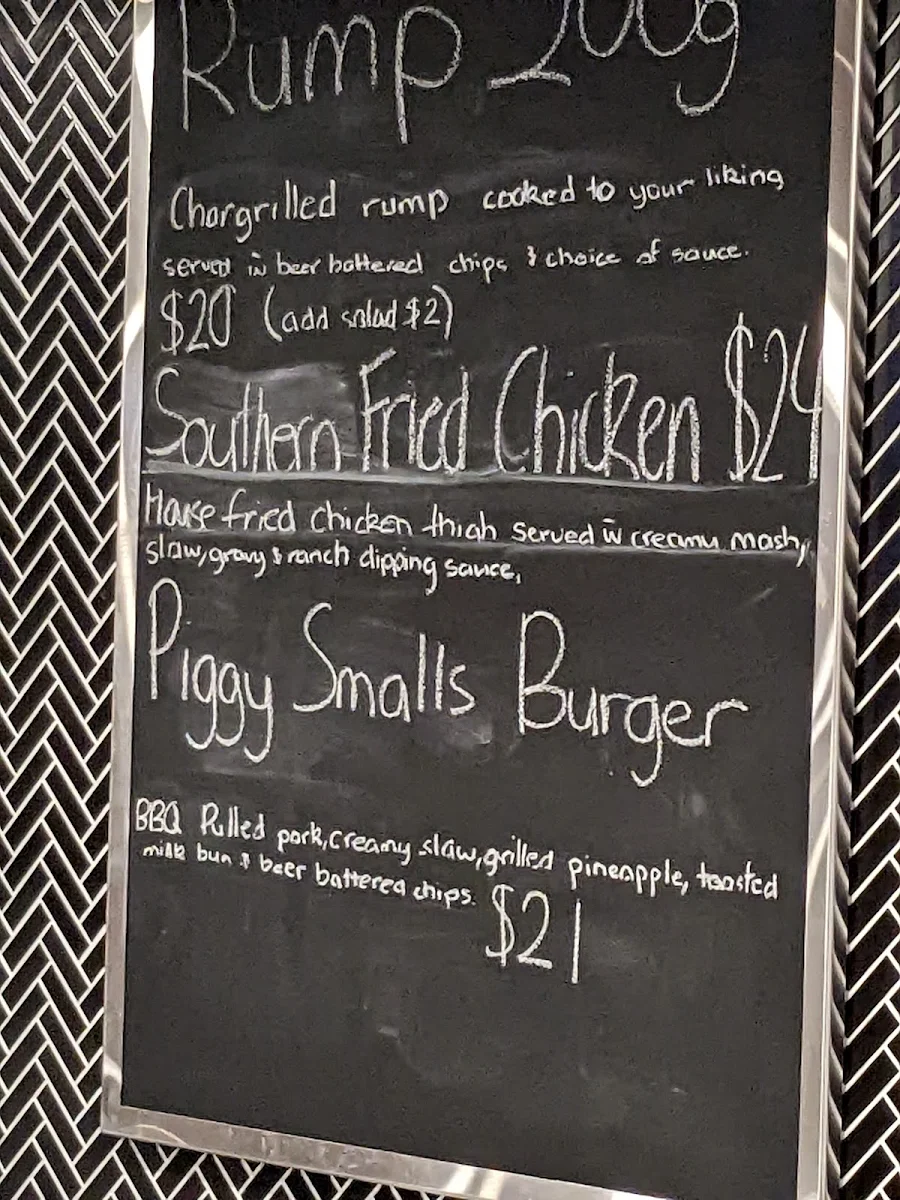 Rump 200g
Chargrilled rump cooked to your liking
served w beer battered chips & choice of sauce.
$20 (add salad $2)
Southern Fried Chicken $24
House fried chicken thigh served w creamy mash,
slaw, gravy & ranch dipping sauce,
Piggy Smalls Burger
BBQ Pulled pork, creamy slaw, grilled pineapple, toasted
milk bun & beer battered chips.
$21